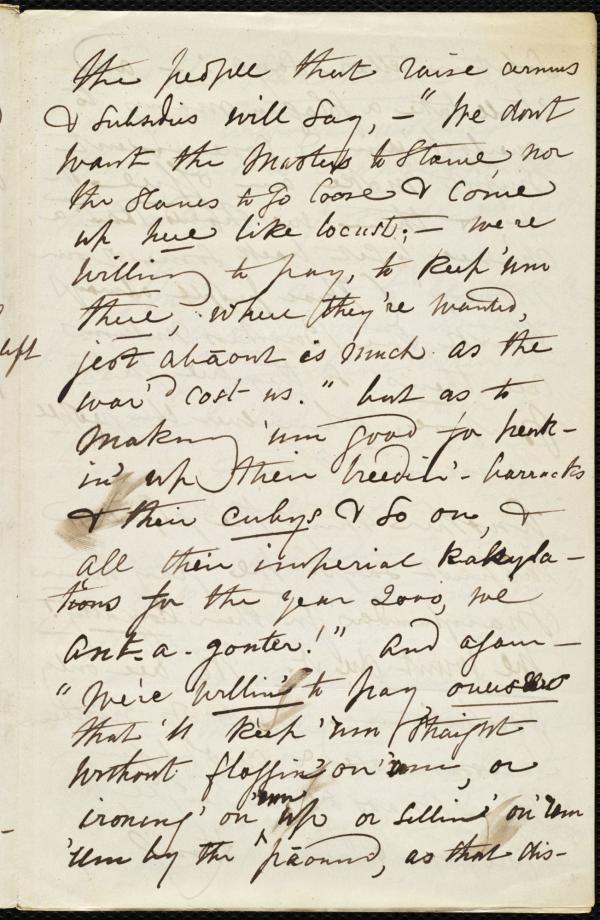 the people that raise armies
& subsidies will say, — "We don't
want the Masters to Starve, nor
the slaves to go loose & come
up here like locust; — we're
willing to pay, to keep 'um
there, where they're wanted,
jest abãout as much as the
war'd cost us." but as to
making 'um good for break-
in' up their breedin'- barracks
& their cubys & so on, &
all their imperial Kalkyla-
tions for the year 2000, we
ant-a-gonter!" And again —
"We're willin' to pay overs
that'll keep 'um straight
without floggin' on 'um, or
ironing' on 'um up or sellin' on 'um
'um by the pãound, as that dis-
left